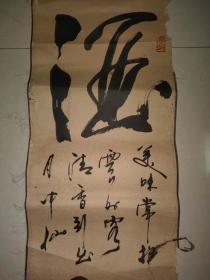 酒
美味常招
雲外客
清香引出
月中仙